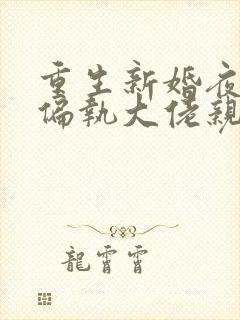 重生新婚夜
偏执大佬亲
龍霄霄